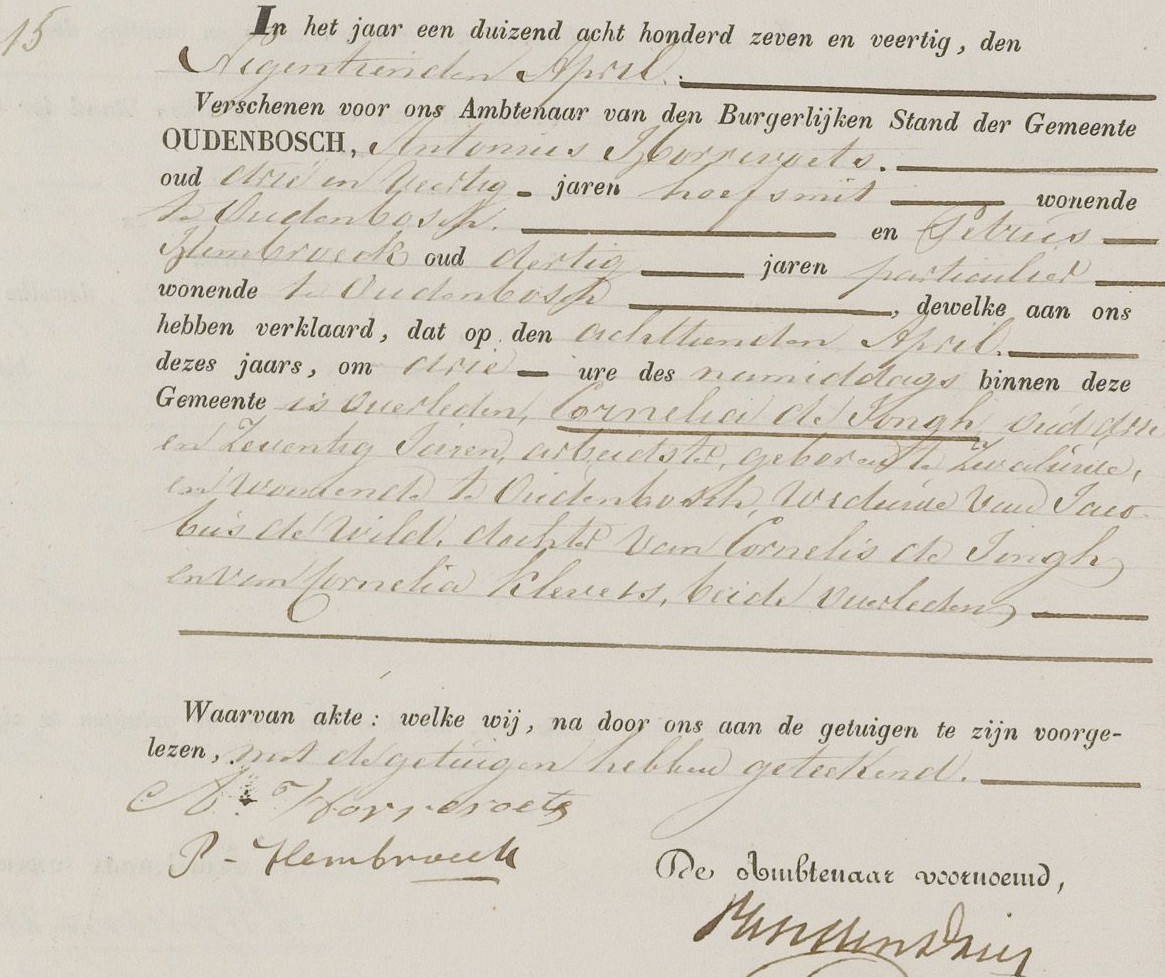 15
In het jaar een duizend acht honderd zeven en veertig, den
Negentienden April.
Verschenen voor ons Ambtenaar van den Burgerlijken Stand der Gemeente
OUDENBOSCH, Antonius Horrevoets.
oud drie en Veertig jaren hoefsmit wonende
te Oudenbosch. en Petrus
Hembroeck oud dertig jaren particulier
wonende te Oudenbosch, dewelke aan ons
hebben verklaard, dat op den achttienden April.
dezes jaars, om drie ure des namiddags binnen deze
Gemeente is overleden, Cornelia de Jongh, oud drie
en Zeventig Jaren, arbeidster, geboren te Zwaluwe,
en Wonende te Oudenbosch, Weduwe van Jaco-
bus de Wild, dochter van Cornelis de Jongh
en van Cornelia Klevers, beide overleden,
Waarvan akte: welke wij, na door ons aan de getuigen te zijn voorge-
lezen, met de getuigen hebben geteekend.
A. Horrevoets
P - Hembroeck
De Ambtenaar voornoemd,